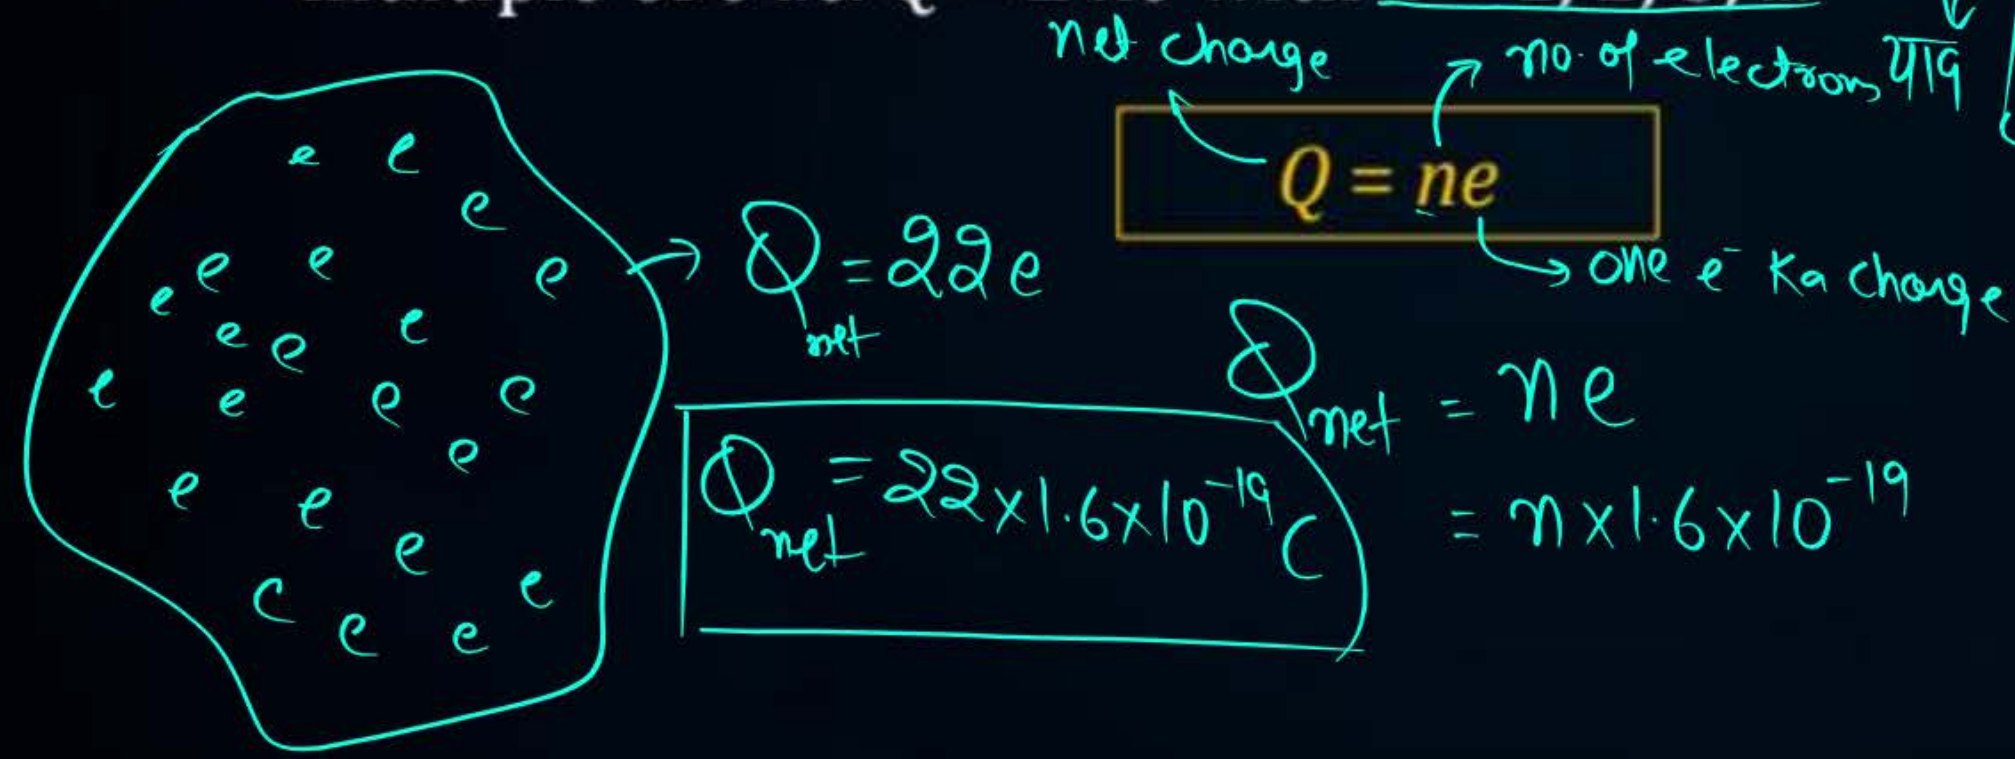 net charge
no. of electrons
Q = ne
one e⁻ ka charge
e e
e
e e e
e
e e e
e e e e
e
e e
e
e e
e e
Q net = 22e
Q net = ne
Q net = 22×1.6×10⁻¹⁹ C
= n×1.6×10⁻¹⁹